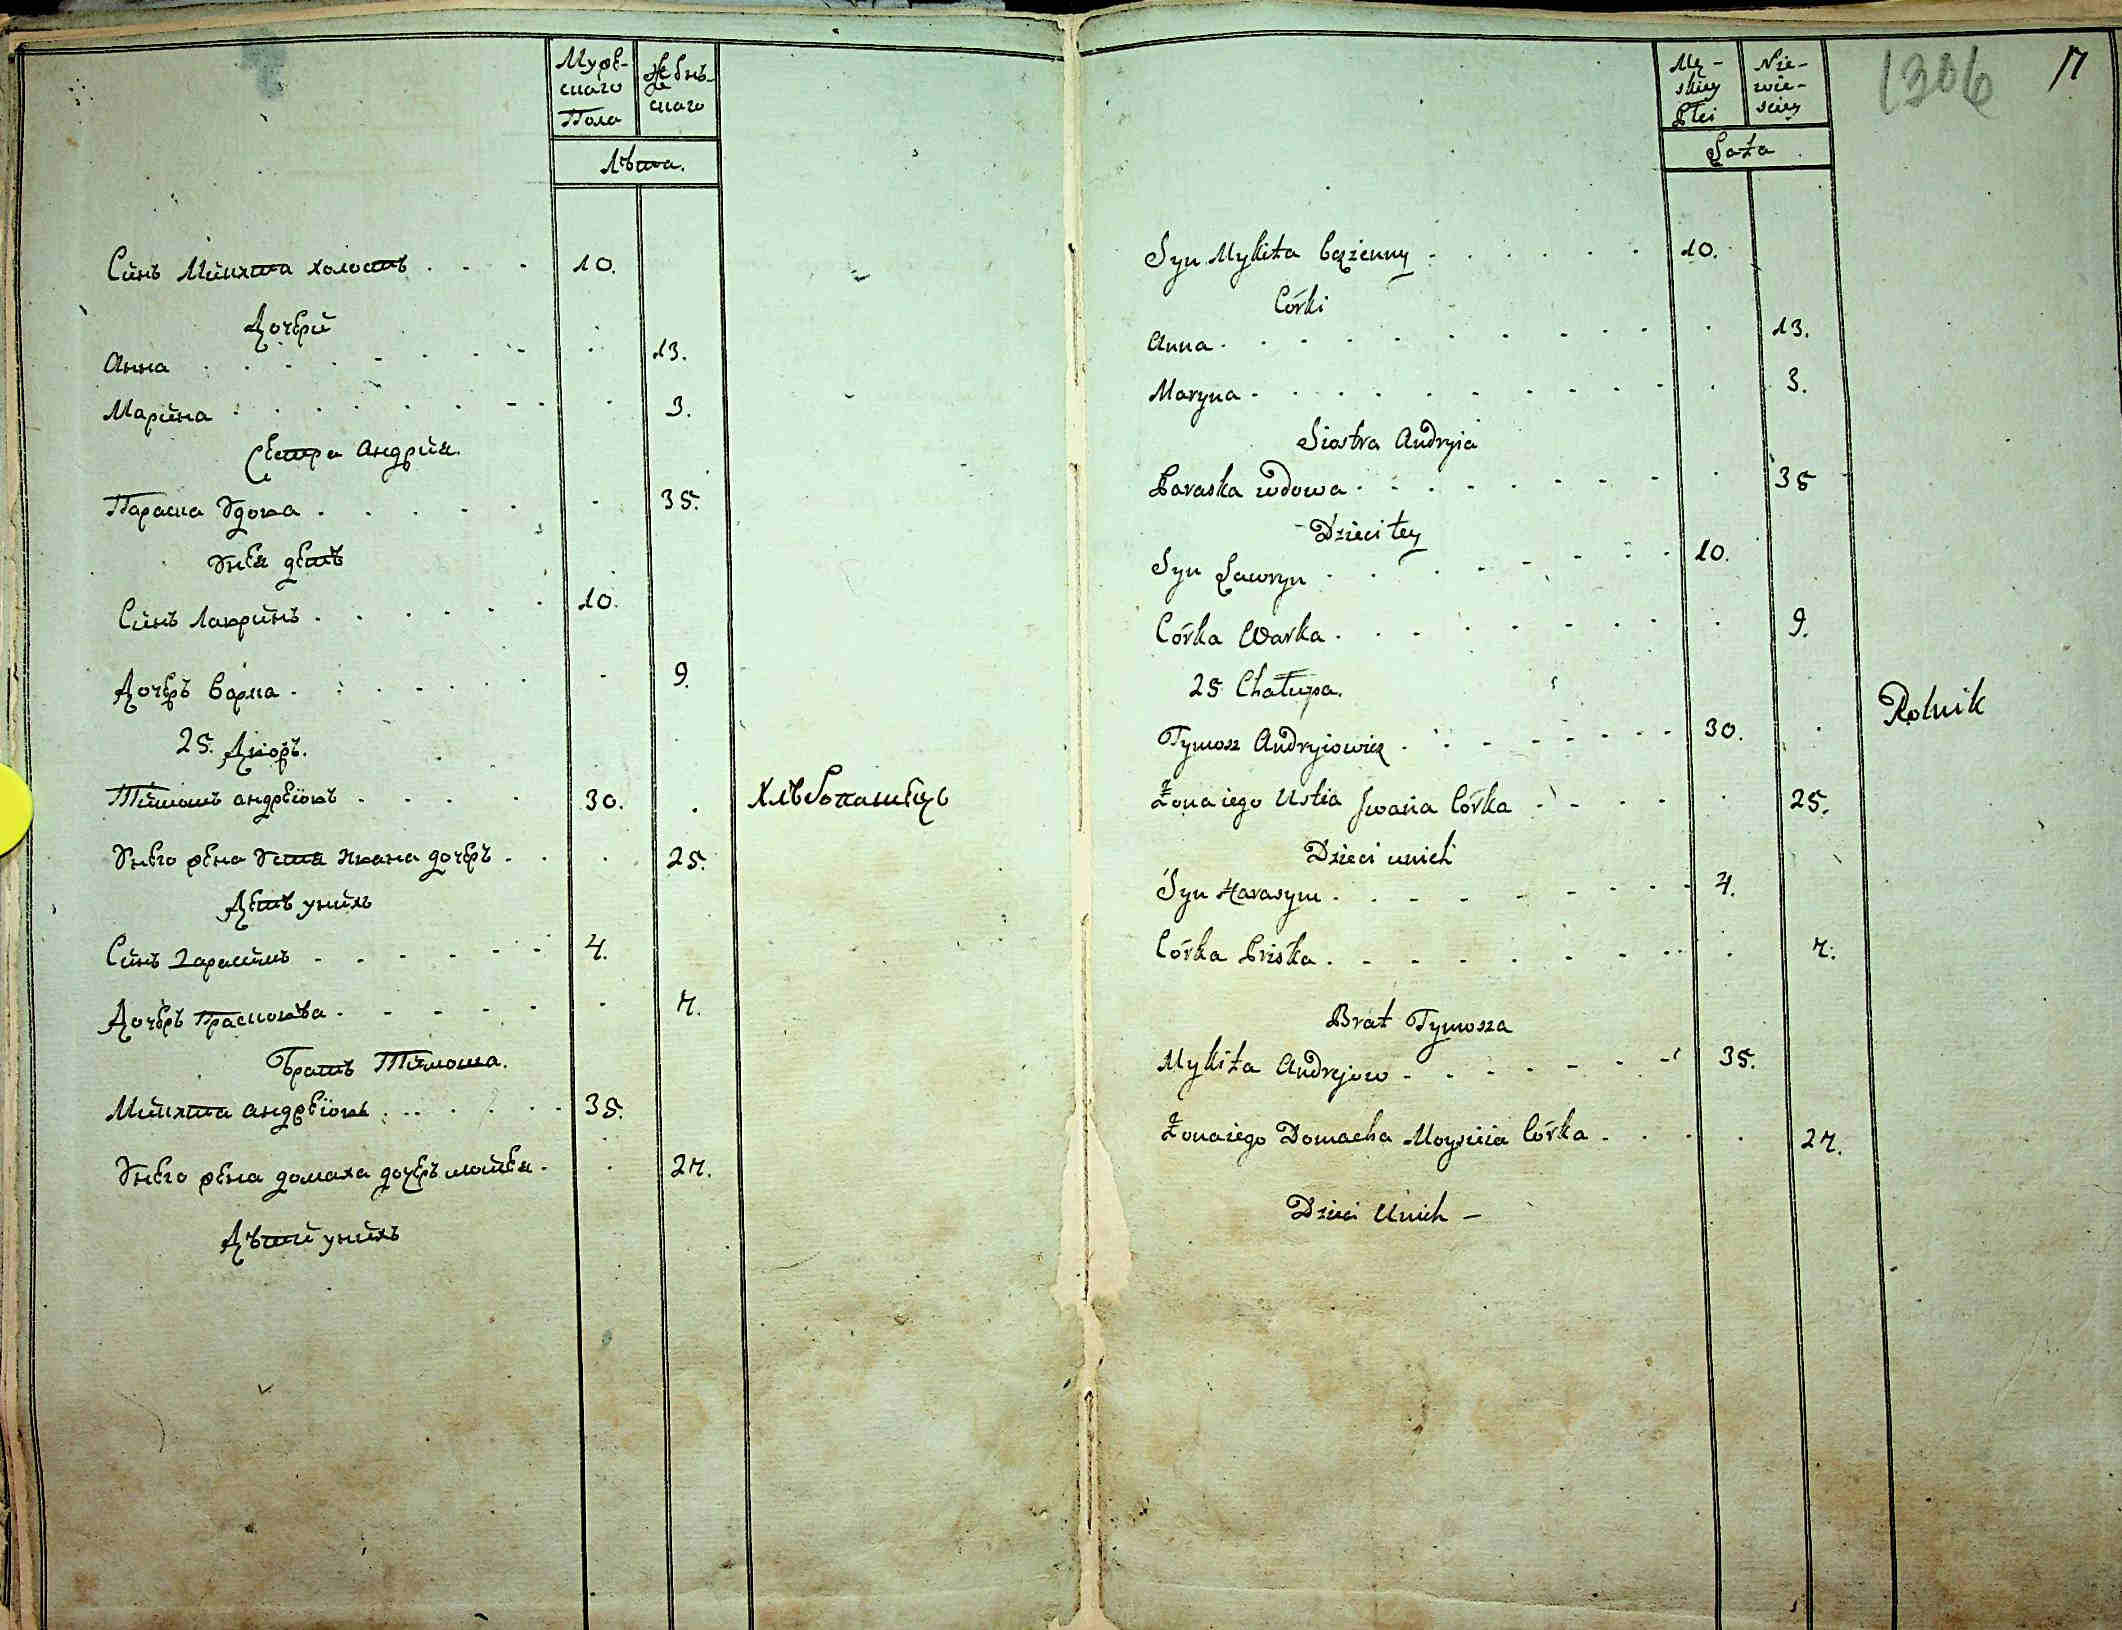 Мужe-
скаго
Пола
Женъ-
скаго
Лѣта.
Синъ Микита холостъ . . . 10.
Дочерй
Анна . . . 13.
Марина . . . 3.
Сестра Андрия.
Параска Удова . . . 35.
Унея детѣ
Синъ Лавринъ . . . 10.
Дочеръ Варка . . . 9.
25. Дворъ.
Тимошъ Андреiовъ . . . 30. Хлѣбопашецъ
Унего жена Устя Ивана дочеръ . . . 25.
Детѣ унихъ
Синъ Гарасимъ . . . 4.
Дочеръ Прасковѣа . . . 7.
Братъ Тимоша.
Микита Андреiовъ . . . 35.
Унего жена домаха дочеръ мойсея . . . 27.
Дѣтй унихъ
1306
7
Mę-
skiey
Płci
Nie-
wie-
sciey
Lata
Syn Mykita bezżenny . . . 10.
Córki
Anna . . . 13.
Maryna . . . 3.
Siostra Andryia
Paraska wdowa . . . 35
Dzieci tey
Syn Lawryn . . . 10.
Córka Warka . . . 9.
25 Chałupa.
Tymosz Andryiowicz . . . 30. Rolnik
Żona iego Ustia Jwana Córka . . . 25.
Dzieci unich
Syn Harasym . . . 4.
Córka Priska . . . 7.
Brat Tymosza
Mykita Andrejow . . . 35.
Żona iego Domacha Moysieia Córka . . . 27.
Dzieci Unich –